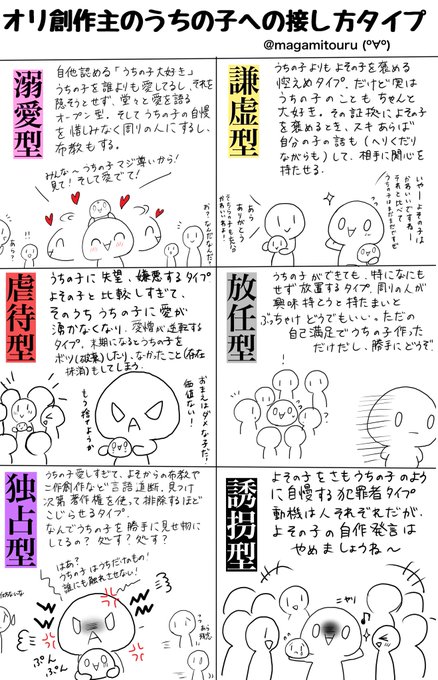 オリ創作主のうちの子への接し方タイプ
@magamitouru (º∀º)
溺愛型
自他認める「うちの子大好き」
うちの子を誰よりも愛してるし、それを
隠そうとせず、堂々と愛を語る
オープン型。そしてうちの子の自慢
を惜しみなく周りの人にするし、
布教もする。
みんな〜うちの子マジ尊いから!
見て!そして愛でて!
お?なんだなんだ?
謙虚型
うちの子よりもよその子を褒める
控えめタイプ。だけど実は
うちの子のこともちゃんと
大好き。その証拠によその子
を褒めるとき、スキあらば
自分の子の話も(へりくだり
ながらも)して、相手に関心を
持たせる。
いやーよその子は
かわいいですねー
それと比べて
うちの子はまだまだですぜ
あら
ありがとう
虐待型
うちの子に失望、嫌悪するタイプ
よその子と比較しすぎて、
そのうちうちの子に愛が
湧かなくなり、愛憎が逆転する
タイプ。末期になるとうちの子を
ボツ(破棄)したり、なかったこと(存在
抹消)もしてしまう。
おまえはダメな子だ!
価値ない!
もう捨てようか
放任型
うちの子ができても、特になにも
せず放置するタイプ。周りの人が
興味持とうと持たまいと
ぶっちゃけどうでもいい。ただの
自己満足でうちの子作った
だけだし、勝手にどうぞ
独占型
うちの子愛しすぎて、よそからの布教や
二次創作など言語道断、見つけ
次第著作権を使って排除するほど
こじらせるタイプ。
なんでうちの子を勝手に見せ物に
してるの?処す?処す?
はあ?
うちの子はうちだけのもの!
誰にも触れさせない!
ぷん
ぷん
誘拐型
よその子をさもうちの子のよう
に自慢する犯罪者タイプ
動機は人それぞれだが、
よその子の自作発言は
やめましょうね〜
ニヤリ